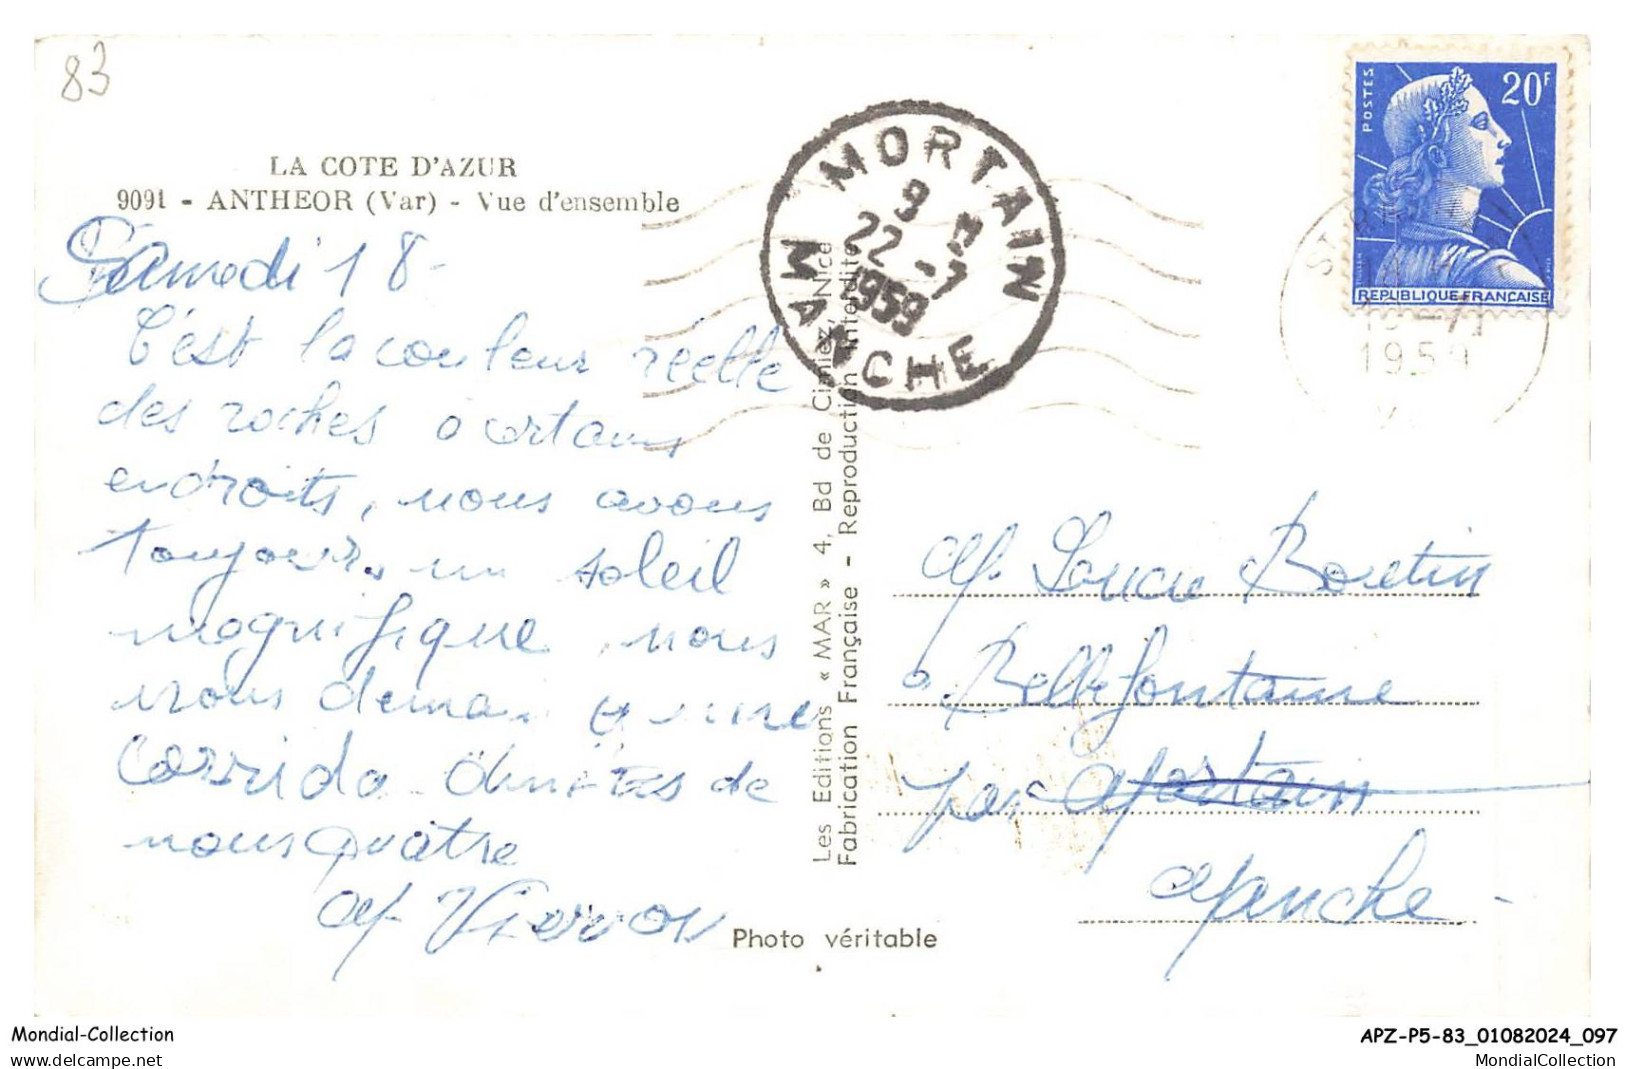 83
LA COTE D'AZUR
9091 - ANTHEOR (Var) - Vue d'ensemble
Samedi 18 -
C'est la couleur réelle
des roches à certains
endroits, nous avons
toujours un soleil
magnifique, nous
irons demain à une
Corrida. Amitiés de
nous quatre
Les Editions « MAR » 4, Bd de Cimiez, Nice
Fabrication Française - Reproduction Interdite
Photo véritable
MORTAIN
9 H
22 -7
1959
MANCHE
POSTES
20F
REPUBLIQUE FRANCAISE
1959
Lucie Boretin
à Bellefontaine
par Mortain
Manche -
Mondial-Collection
APZ-P5-83_01082024_097
www.delcampe.net
MondialCollection